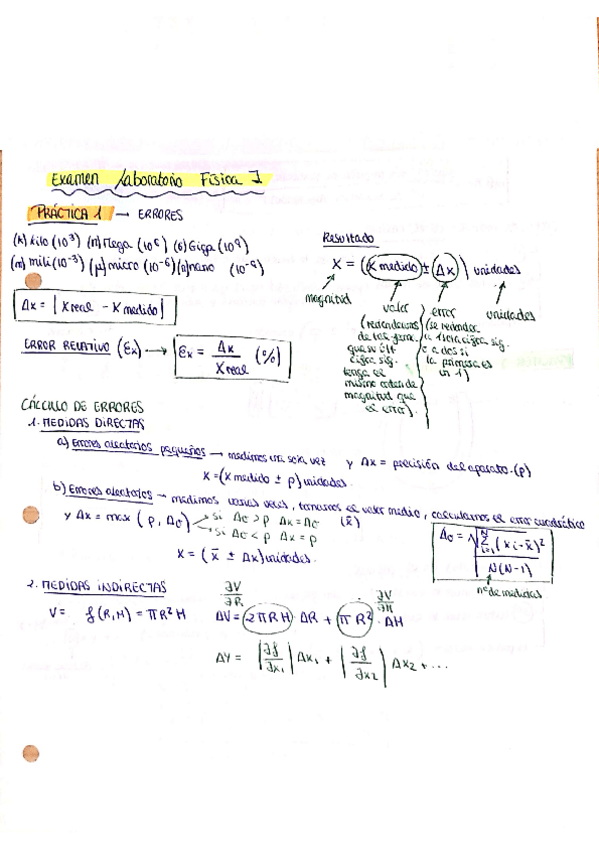 Examen Laboratorio Física I
PRÁCTICA 1 → ERRORES
(k) kilo (10³) (M) Mega (10⁶) (G) Giga (10⁹)
(m) mili (10⁻³) (μ) micro (10⁻⁶) (n) nano (10⁻⁹)
Δx = | x real - x medido |
ERROR RELATIVO (εx) → εx = Δx / x real (%)
Resultado
X = (x medido ± Δx) unidades
magnitud
valor
(redondeamos
de tal forma
que su últ
cifra sig.
tenga el
mismo orden de
magnitud que
el error).
error
(se redondea
a 1 sola cifra sig.
o a dos si
la primera es
un 1)
unidades
CÁLCULO DE ERRORES
1. MEDIDAS DIRECTAS
a) Errores aleatorios pequeños → medimos una sola vez y Δx = precisión del aparato (p)
X = (x medido ± p) unidades.
b) Errores aleatorios → medimos varias veces, tomamos el valor medio, calculamos el error cuadrático
(x̄)
y Δx = max (p, Δc) → si Δc > p Δx = Δc
→ si Δc < p Δx = p
X = (x̄ ± Δx) unidades.
Δc = √( Σᵢ₌₁ᴺ (xi - x̄)² / N(N-1) )
nº de medidas
2. MEDIDAS INDIRECTAS
∂V/∂R ∂V/∂H
V = f(R,H) = πR²H ΔV = 2πRH · ΔR + πR² · ΔH
ΔY = |∂f/∂x₁| Δx₁ + |∂f/∂x₂| Δx₂ + ...